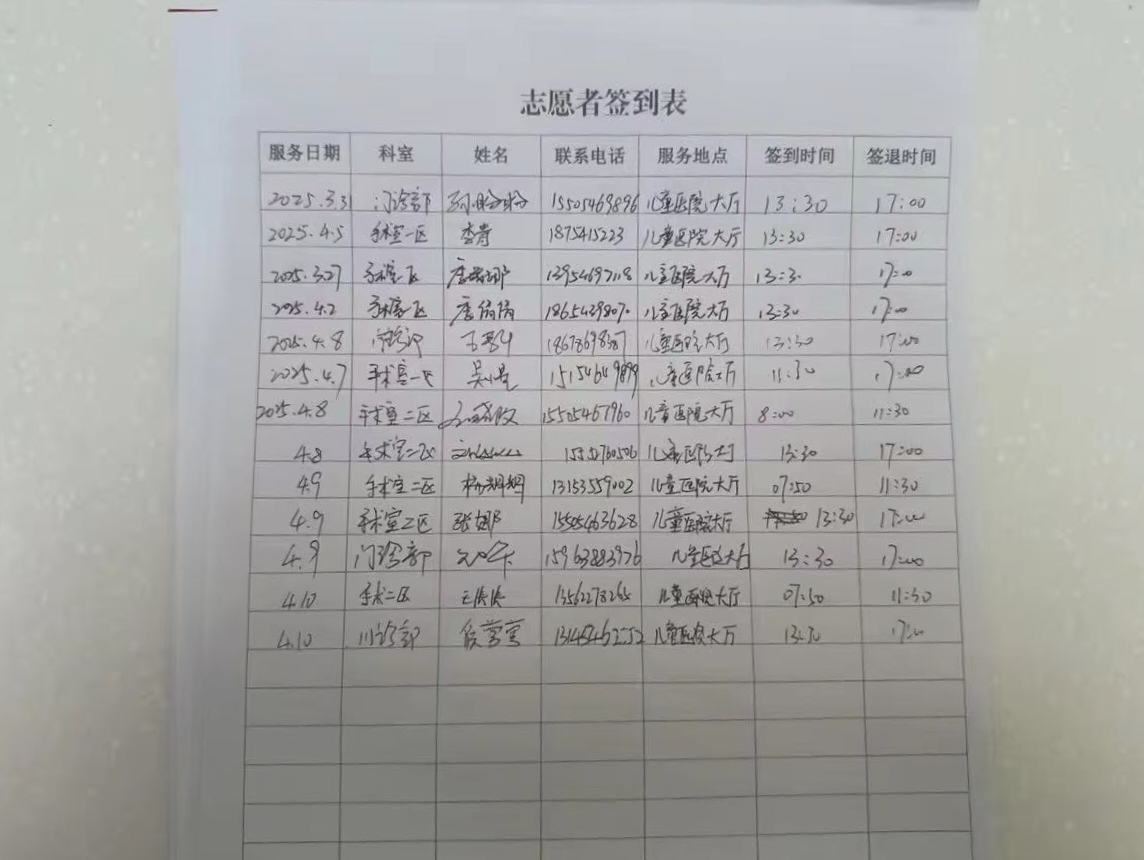 志愿者签到表
服务日期 科室 姓名 联系电话 服务地点 签到时间 签退时间
2025.3.31 门诊部 孙盼盼 15505469896 儿童医院大厅 13:30 17:00
2025.4.5 手术室一区 李青 1875415223 儿童医院大厅 13:30 17:00
2025.3.27 手术室一区 13954697118 儿童医院大厅 13:30 17:00
2025.4.2 手术室一区 唐倩倩 儿童医院大厅 13:30 17:00
2025.4.8 门诊部 儿童医院大厅 13:30 17:00
2025.4.7 手术室一区 15154649899 儿童医院大厅 11:30 17:00
2025.4.8 手术室二区 15505467960 儿童医院大厅 8:00 11:30
4.8 手术室二区 儿童医院大厅 13:30 17:00
4.9 手术室二区 13153559002 儿童医院大厅 07:50 11:30
4.9 手术室二区 张娜 15505463628 儿童医院大厅 13:30 17:00
4.9 门诊部 15963883976 儿童医院大厅 13:30 17:00
4.10 手术二区 儿童医院大厅 07:50 11:30
4.10 门诊部 儿童医院大厅 13:30 17:00